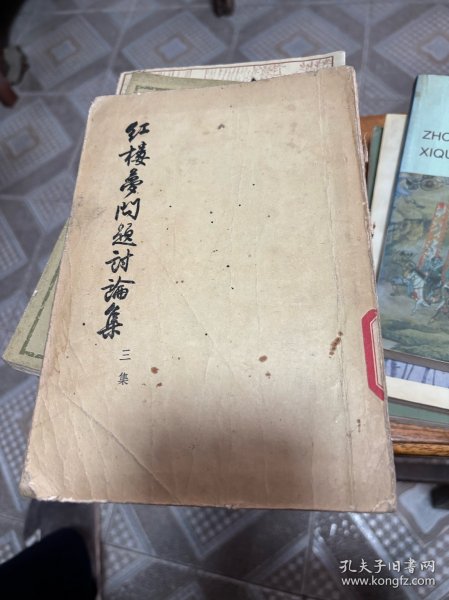 红楼夢問题討論集
三集
ZHO
XIQU
孔夫子旧书网
www.kongfz.com